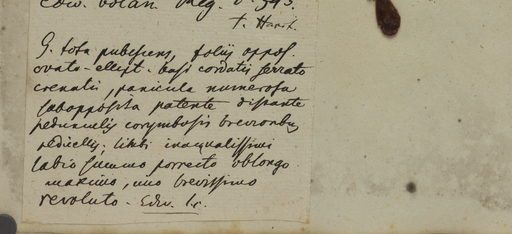 Edw. botan. Reg. t. 593.
G. tota pubescens, foliis oppos.
ovato-ellipt. basi cordatis serrato
crenatis, panicula numerosa
subopposita patente distante
pedunculis corymbosis brevioribus
pedicellis; limbi inaequalissimi
labio summo porrecto oblongo
maximo, imo brevissimo
revoluto - Edw. l.c.